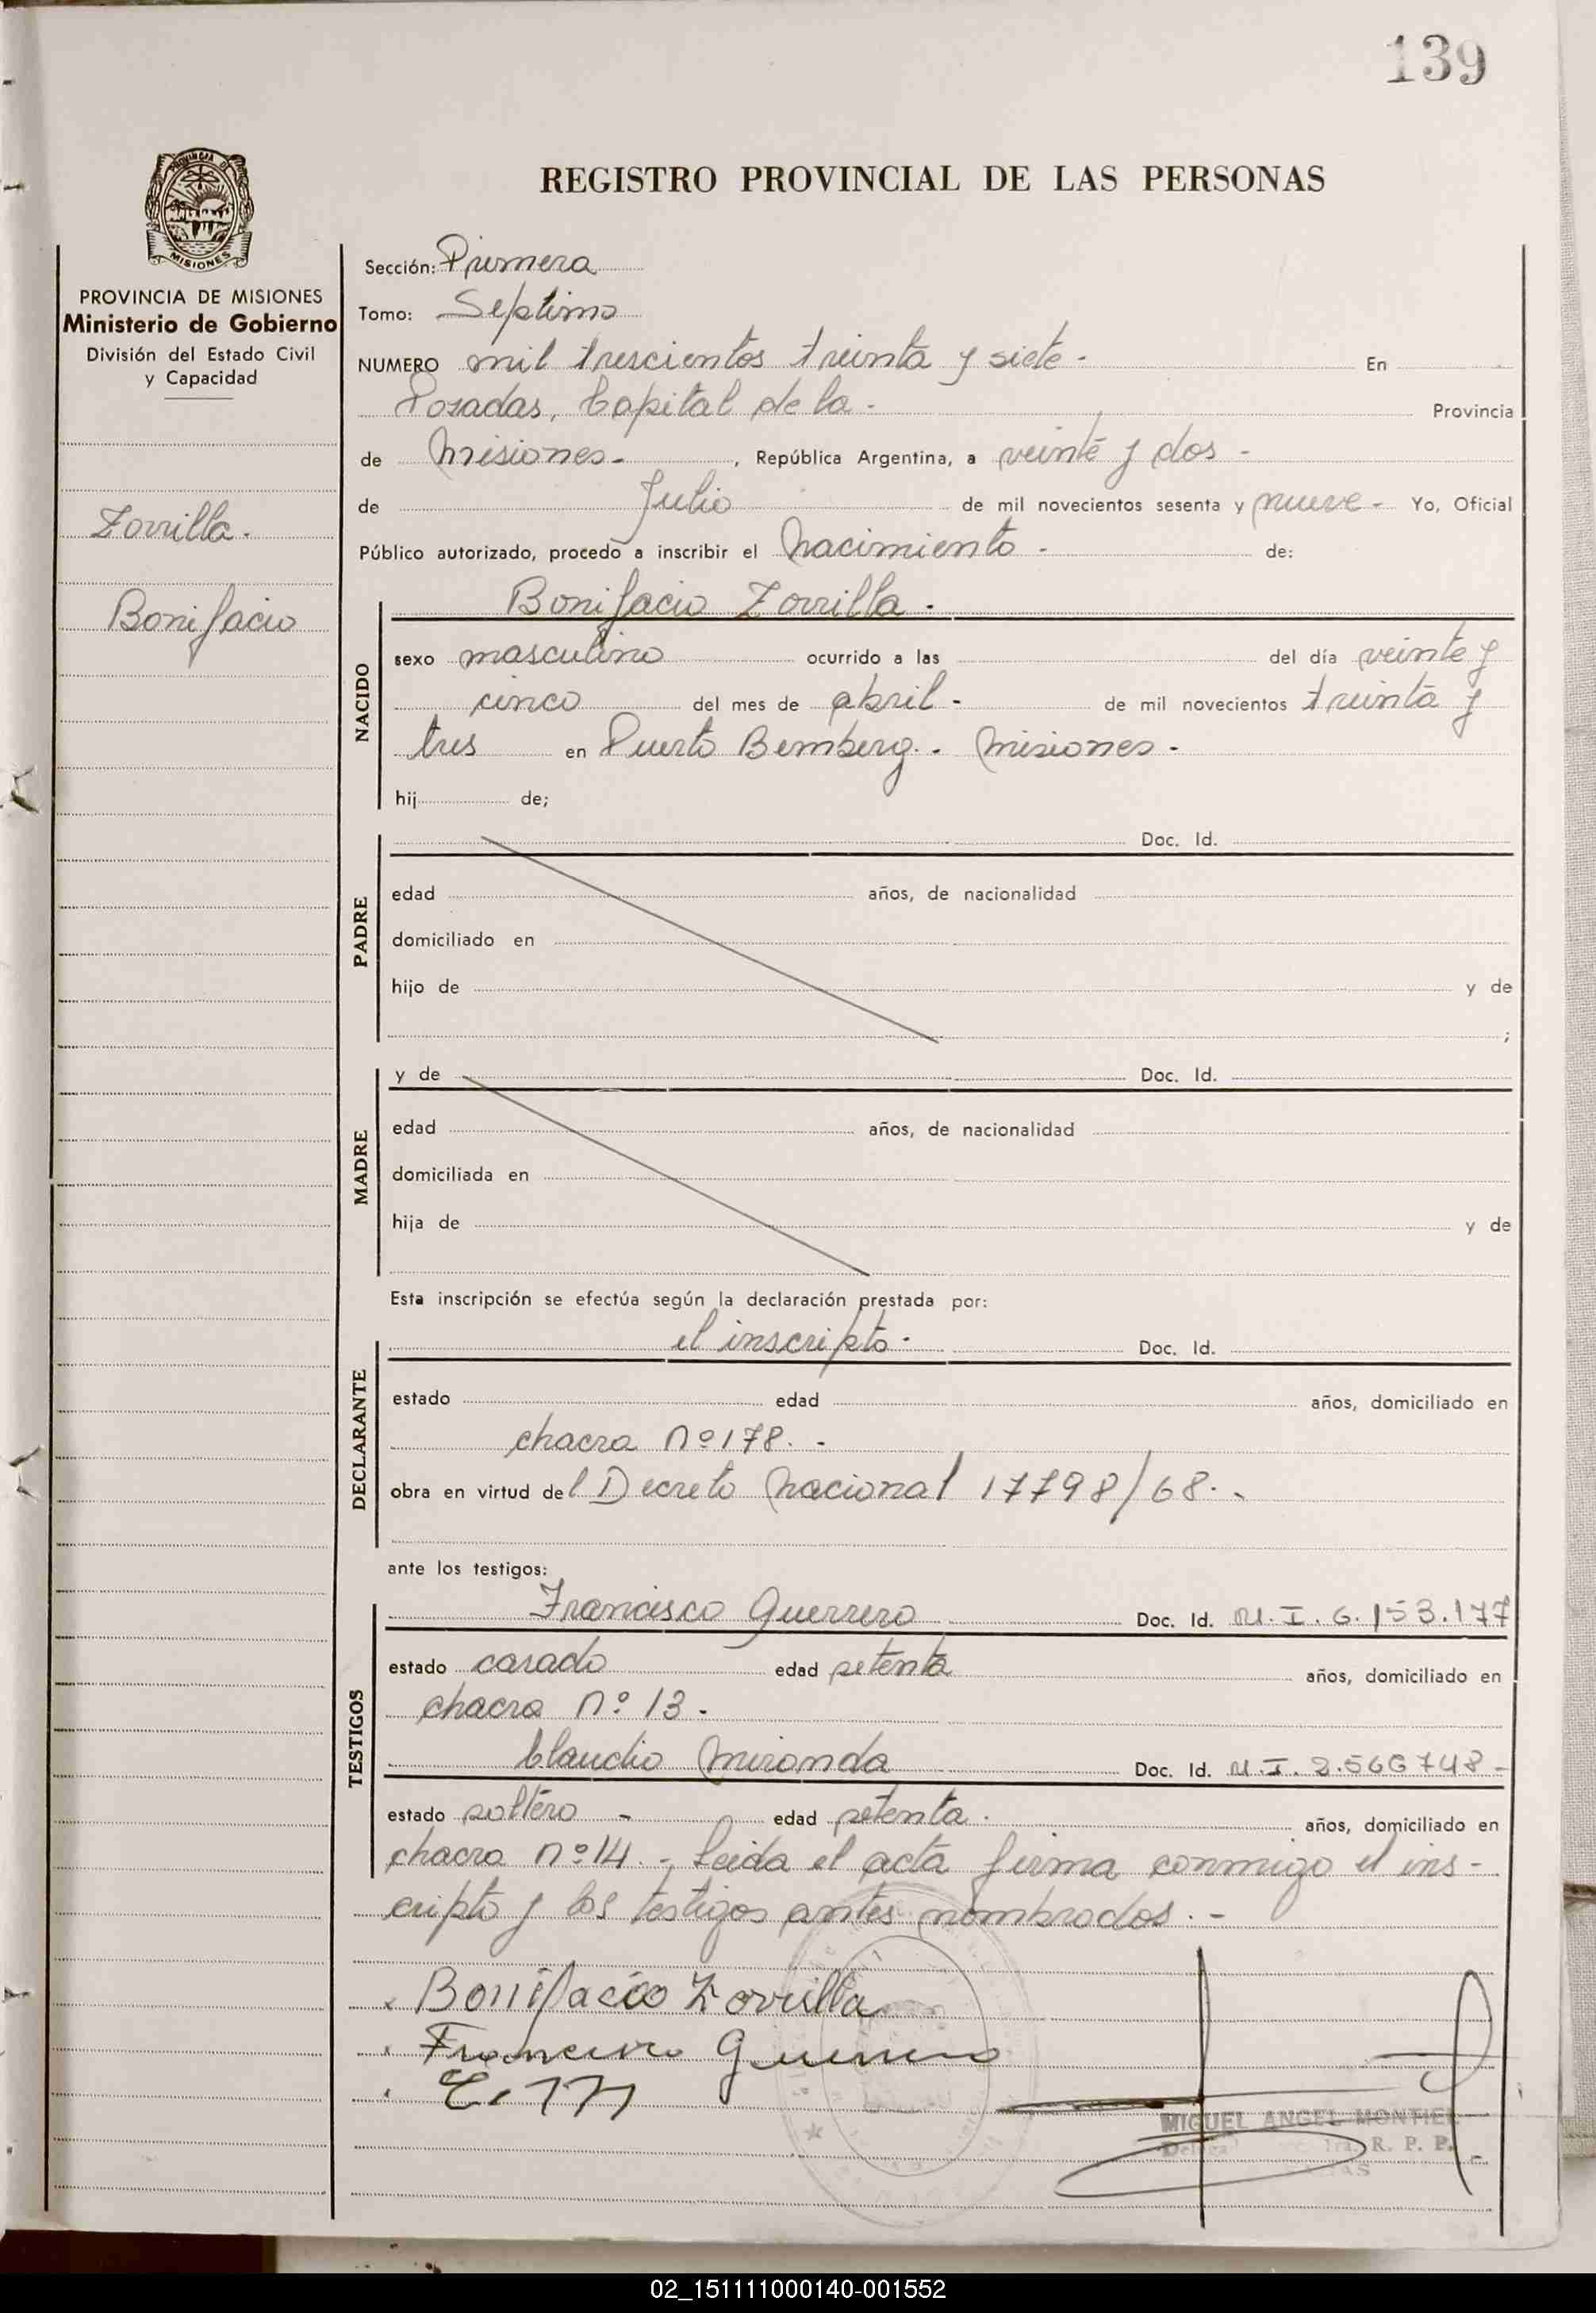 139
REGISTRO PROVINCIAL DE LAS PERSONAS
PROVINCIA DE MISIONES
Ministerio de Gobierno
División del Estado Civil
y Capacidad
Zorrilla.
Bonifacio
Sección: Primera
Tomo: Septimo
NUMERO mil trescientos treinta y siete - En
Posadas, Capital de la - Provincia
de Misiones - , República Argentina, a veinte y dos -
de Julio de mil novecientos sesenta y nueve - Yo, Oficial
Público autorizado, procedo a inscribir el nacimiento - de:
NACIDO
Bonifacio Zorrilla -
sexo masculino ocurrido a las del día veinte y
cinco del mes de abril - de mil novecientos treinta y
tres en Puerto Bemberg. - Misiones -
hij de;
PADRE
Doc. Id.
edad años, de nacionalidad
domiciliado en
hijo de y de
;
MADRE
y de Doc. Id.
edad años, de nacionalidad
domiciliada en
hija de y de
Esta inscripción se efectúa según la declaración prestada por:
DECLARANTE
el inscripto - Doc. Id.
estado edad años, domiciliado en
chacra nº 178. -
obra en virtud del Decreto Nacional 17798/68. -
ante los testigos:
TESTIGOS
Francisco Guerrero Doc. Id. M. I. 6.153.177
estado casado edad setenta años, domiciliado en
chacra nº 13 -
Claudio Miranda Doc. Id. M. I. 2.566748 -
estado soltero - edad setenta - años, domiciliado en
chacra nº 14. - Leida el acta firma conmigo el ins-
cripto y los testigos antes nombrados. -
Bonifacio Zorrilla
Francisco Guerrero
C. M
MIGUEL ANGEL MONTIEL
R. P. P.
02_151111000140-001552